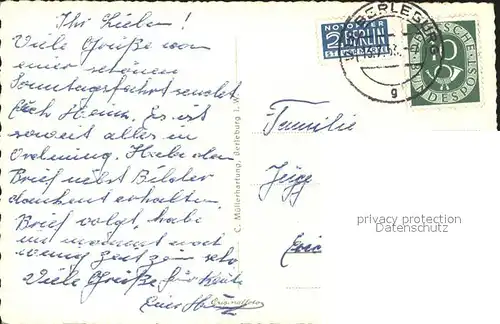 Ihr Lieben!
Viele Grüße von
einer schönen
Sonntagsfahrt sendet
Euch Heinz. Es ist
soweit alles in
Ordnung. Habe den
Brief nebst Bilder
dankend erhalten.
Brief folgt, habe
im moment noch
wenig Zeit
Viele Grüße für heute
Euer
C. Möllerhartung, Berleburg i. W.
Originalfoto
NOTOPFER
2 BERLIN
STEUERMARKE
BERLEBURG
g
DEUTSCHE BUNDESPOST
Familie
privacy protection
Datenschutz